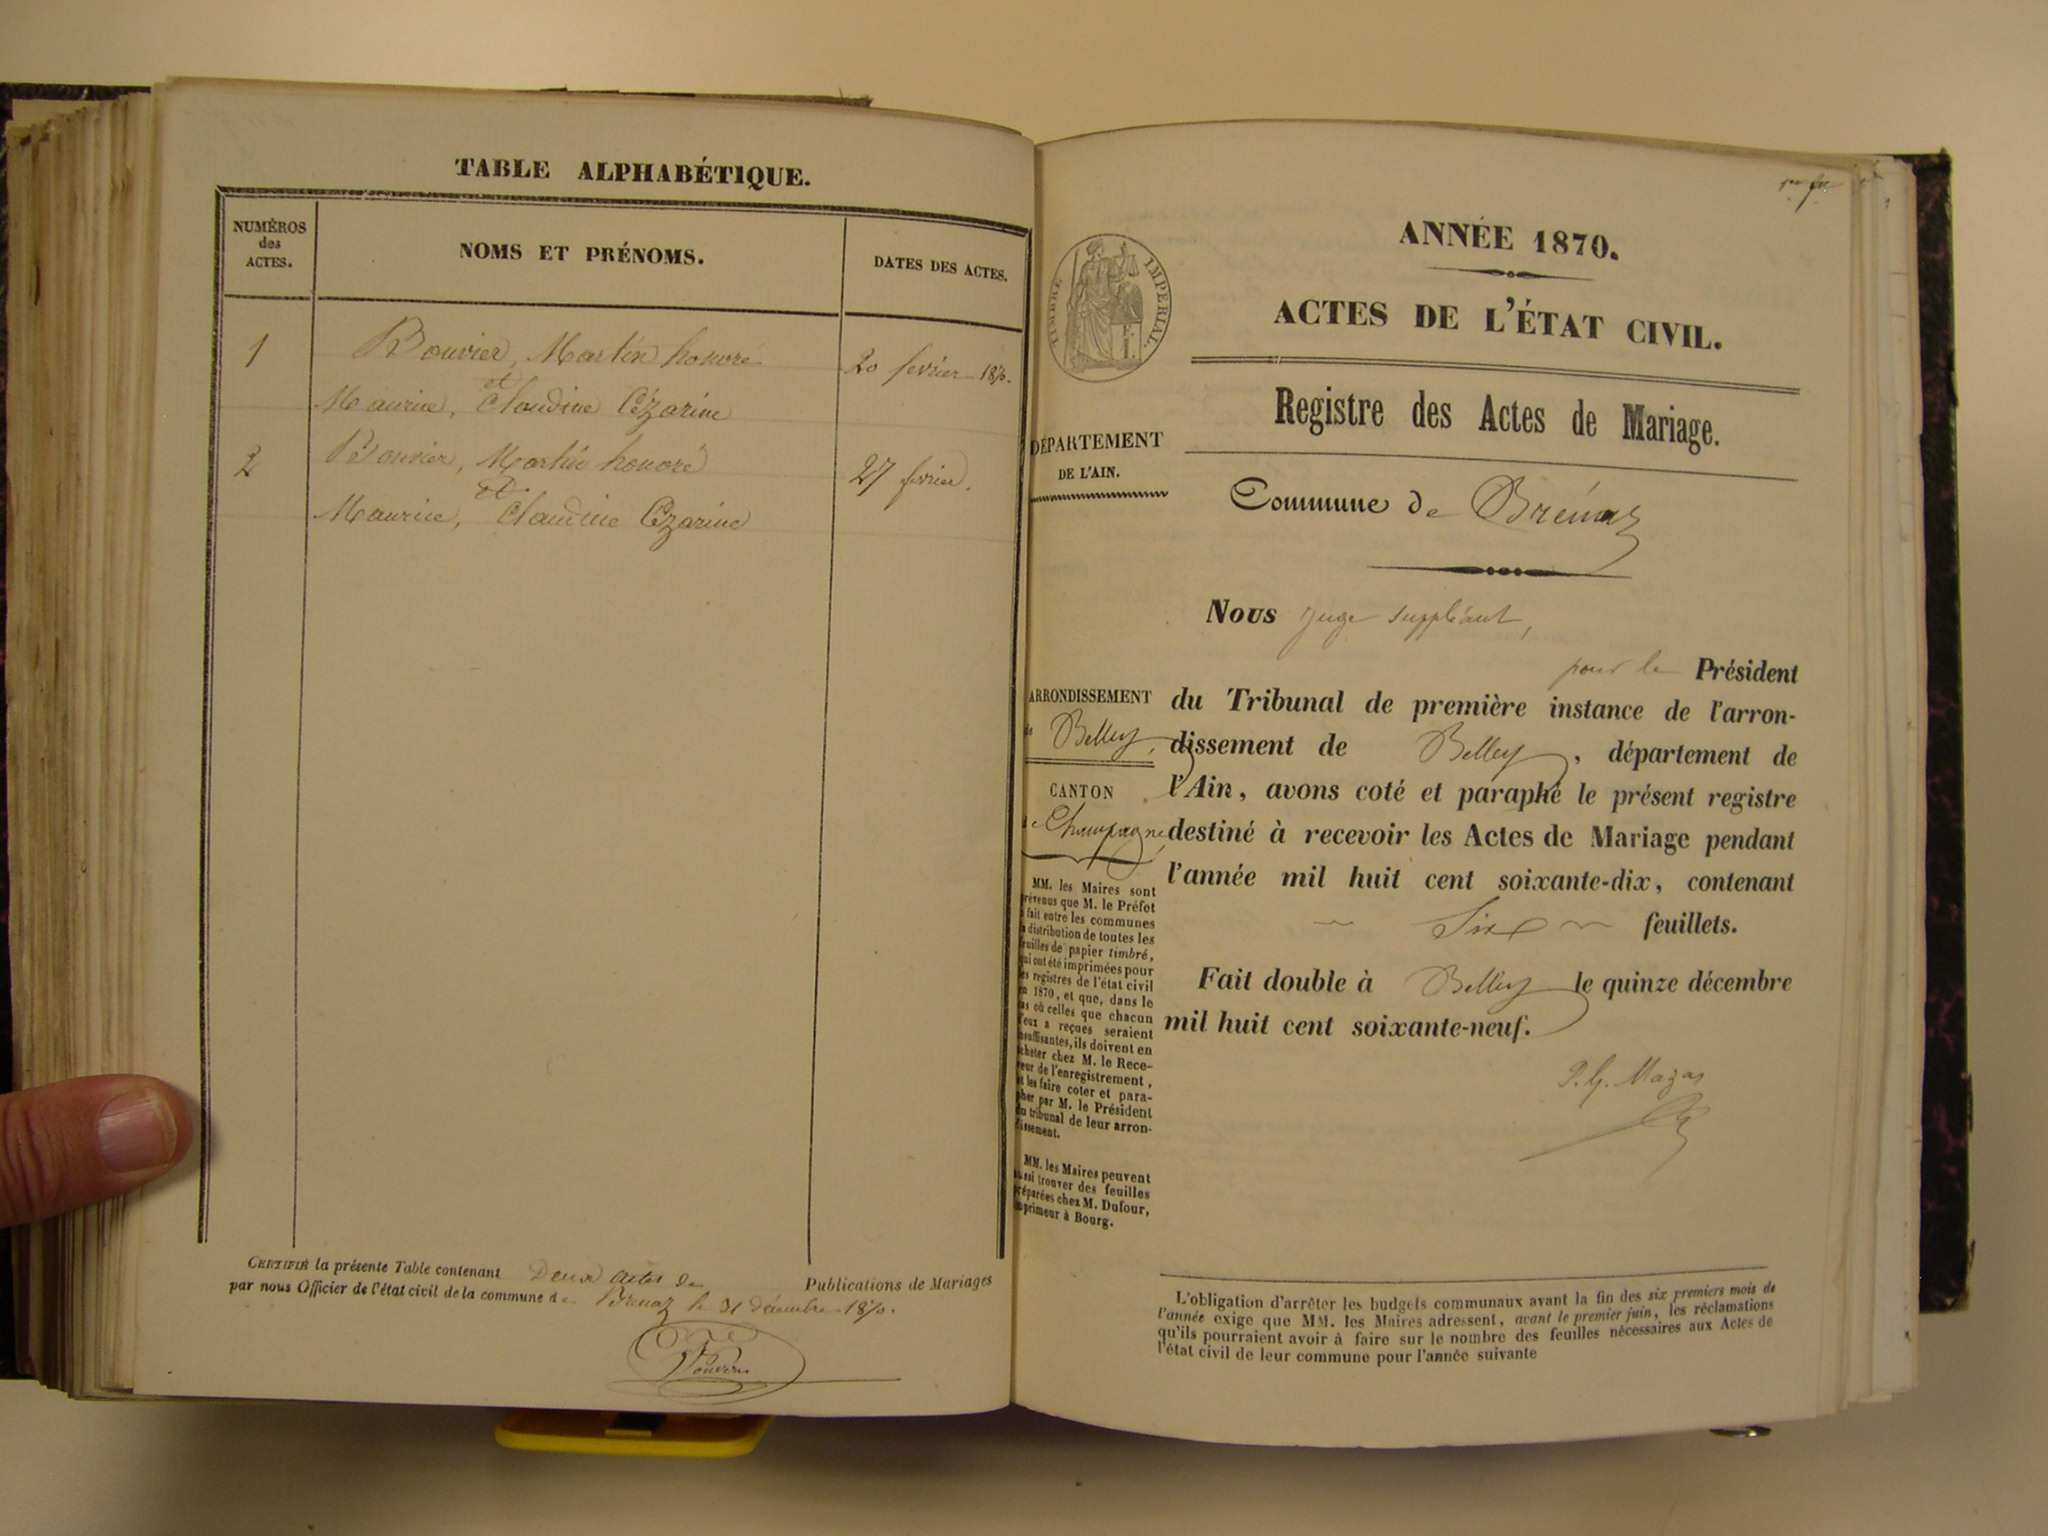 TABLE ALPHABÉTIQUE.
NUMÉROS
des
ACTES.
NOMS ET PRÉNOMS.
DATES DES ACTES.
1
Bouvier, Martin honoré
20 février 1870.
et
Maurice, Claudine Cézarine
2
Bouvier, Martin honoré
27 février.
et
Maurice, Claudine Cézarine
CERTIFIÉ la présente Table contenant Deux actes de Publications de Mariages
par nous Officier de l'état civil de la commune de Brénaz le 31 décembre 1870.
ANNÉE 1870.
ACTES DE L'ÉTAT CIVIL.
TIMBRE IMPERIAL.
Registre des Actes de Mariage.
DÉPARTEMENT
DE L'AIN.
Commune de Brénaz
Nous juge suppléant,
pour le Président
ARRONDISSEMENT
de Belley,
CANTON
de Champagne,
du Tribunal de première instance de l'arron-
dissement de Belley, département de
l'Ain, avons coté et paraphé le présent registre
destiné à recevoir les Actes de Mariage pendant
l'année mil huit cent soixante-dix, contenant
Six feuillets.
Fait double à Belley le quinze décembre
mil huit cent soixante-neuf.
P. G. Mazas
MM. les Maires sont
prévenus que M. le Préfet
a fait entre les communes
la distribution de toutes les
feuilles de papier timbré,
qui ont été imprimées pour
les registres de l'état civil
en 1870, et que, dans le
cas où celles que chacun
d'eux a reçues seraient
insuffisantes, ils doivent en
acheter chez M. le Rece-
veur de l'enregistrement,
et les faire coter et para-
pher par M. le Président
du tribunal de leur arron-
dissement.
MM. les Maires peuvent
aussi trouver des feuilles
préparées chez M. Dufour,
imprimeur à Bourg.
L'obligation d'arrêter les budgets communaux avant la fin des six premiers mois de
l'année exige que MM. les Maires adressent, avant le premier juin, les réclamations
qu'ils pourraient avoir à faire sur le nombre des feuilles nécessaires aux Actes de
l'état civil de leur commune pour l'année suivante